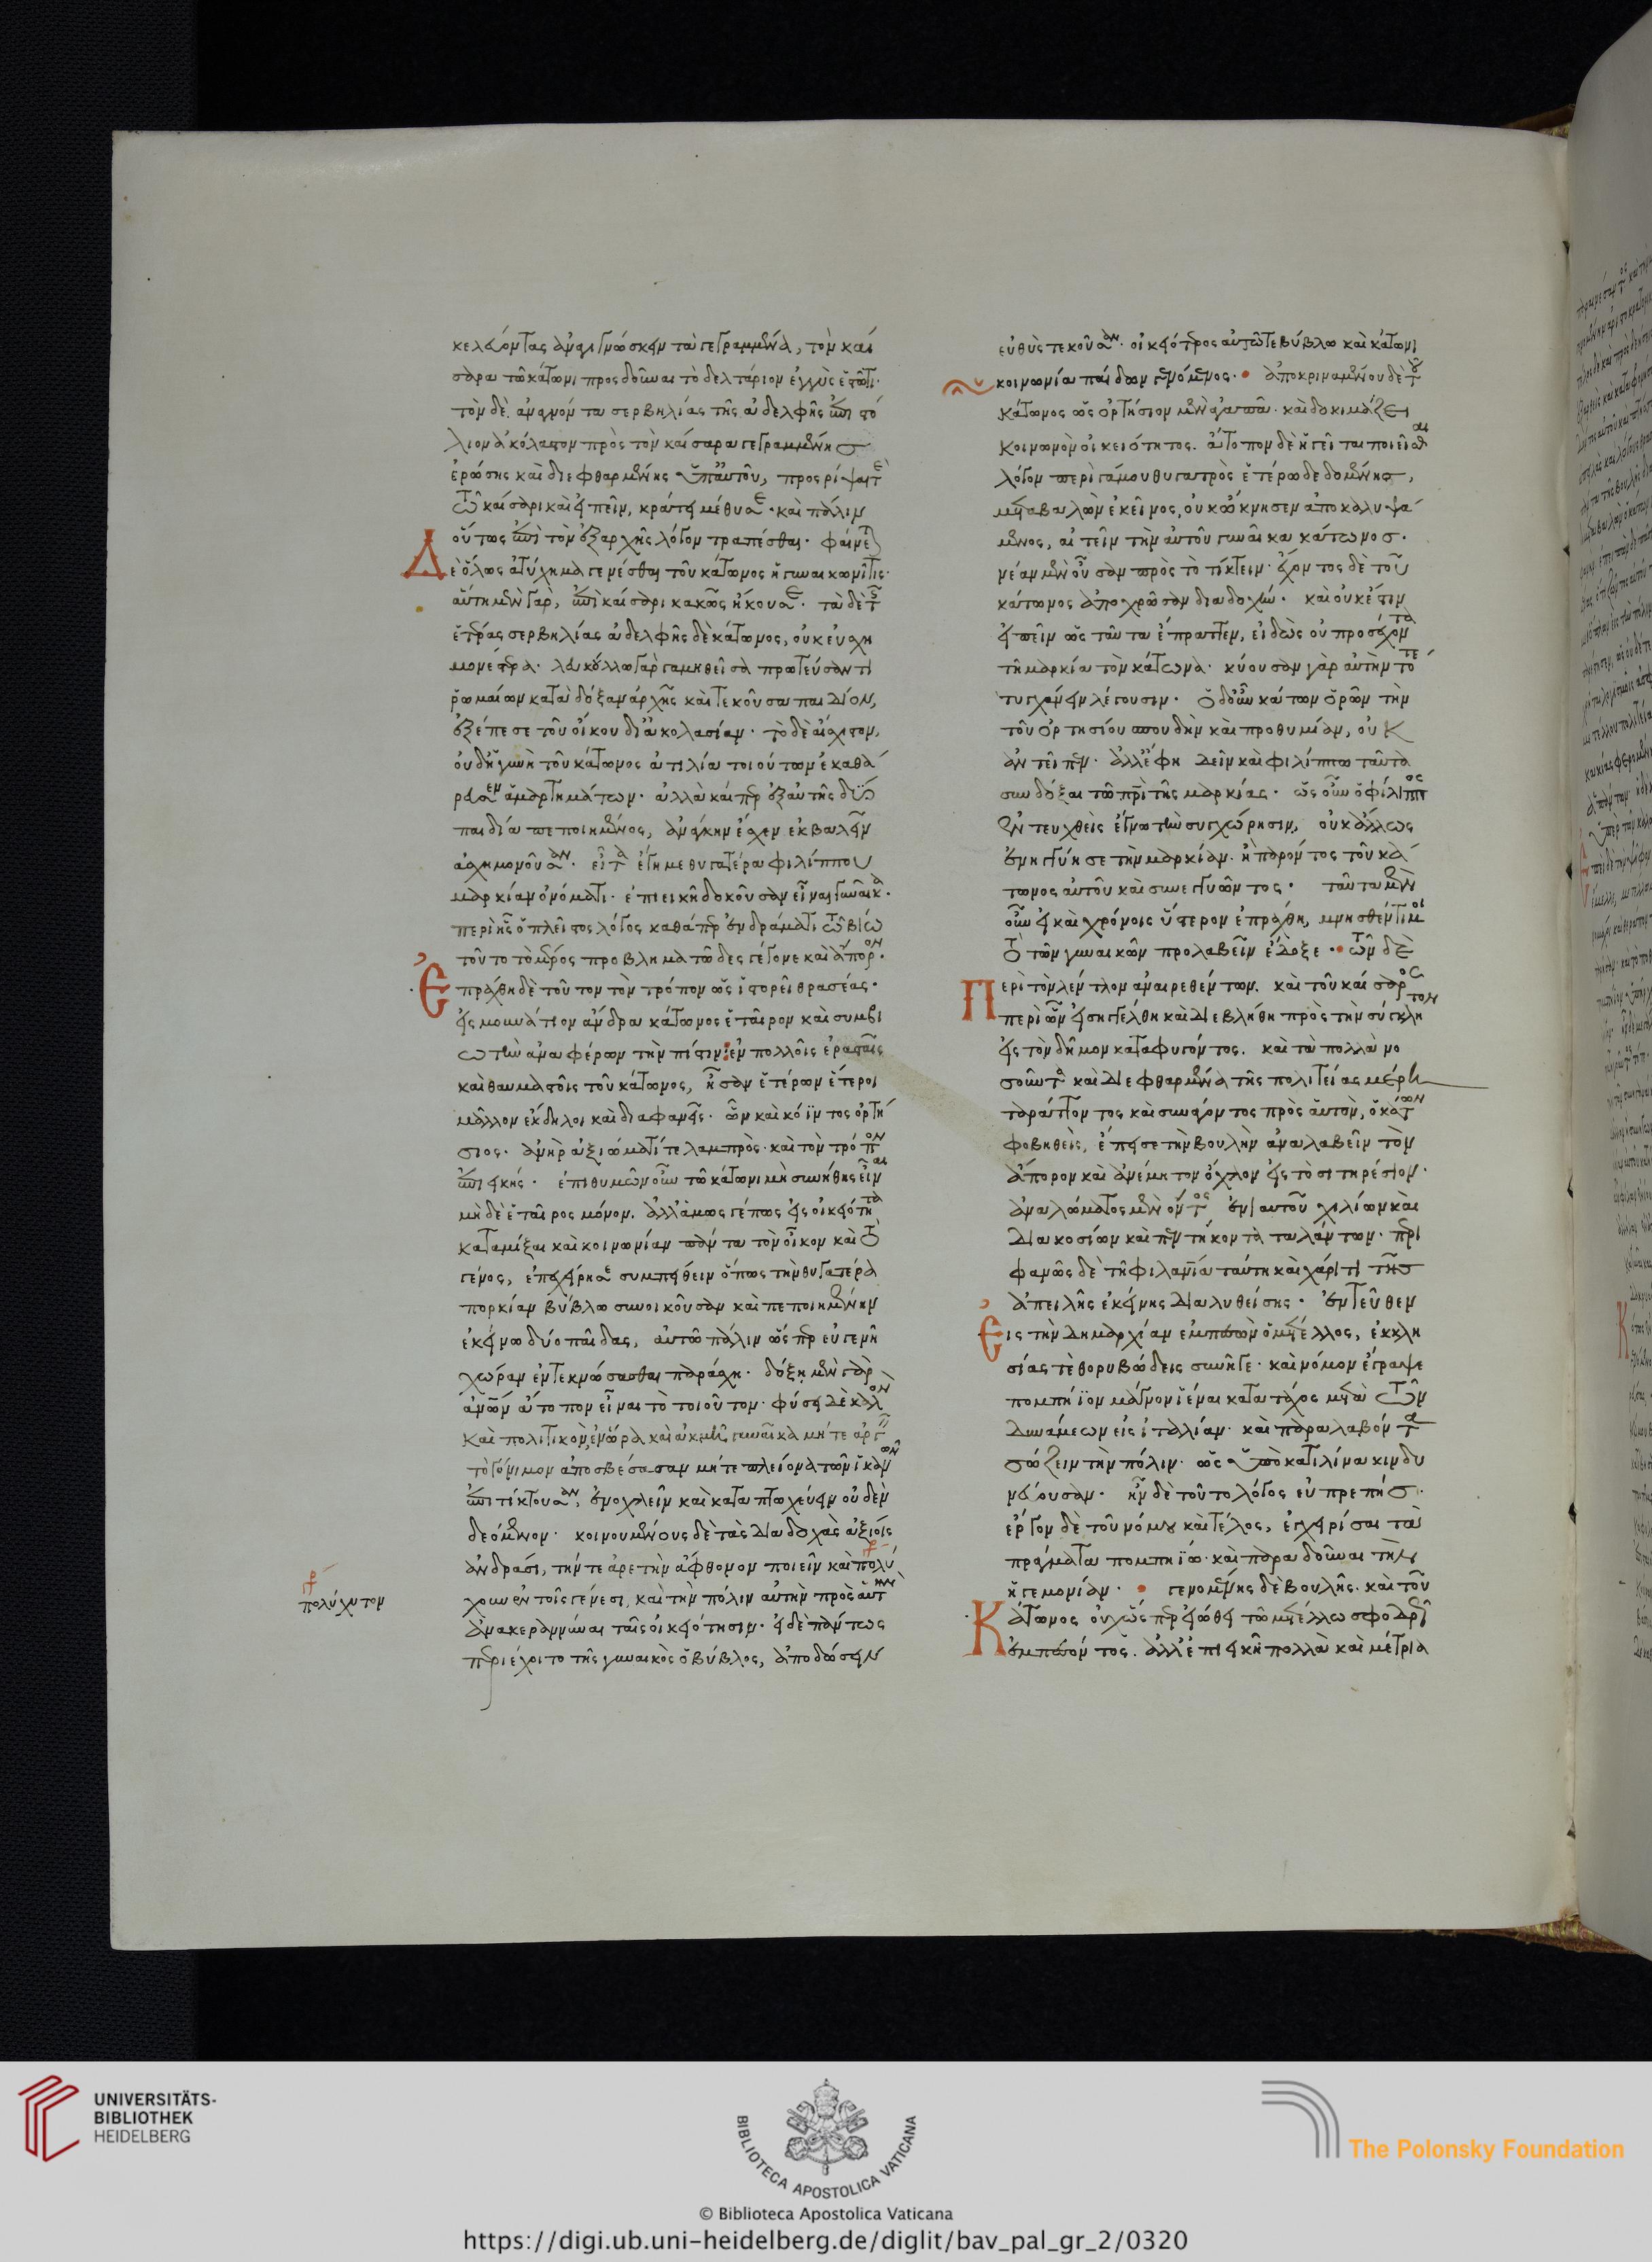 κελεύοντας ἀναγινώσκειν τὰ γεγραμμένα, τὸν καί
σαρα τῶ κάτωνι προσδοῦναι τὸ δελτάριον ἐγγὺς ἑστῶτι·
τὸν δὲ ἀναγνόντα σερβηλίας τῆς ἀδελφῆς ἐπιστό
λιον ἀκόλαστον πρὸς τὸν καίσαρα γεγραμμένης
ἐρώσης καὶ διεφθαρμένης ὑπ' αὐτοῦ, προσρίψαι τε
τῶ καίσαρι καὶ εἰπεῖν, κράτει μέθυσε· καὶ πάλιν
οὕτως ἐπὶ τὸν ἐξαρχῆς λόγον τραπέσθαι· φαίνεται
Δὲ ὅλως ἀτύχημα γενέσθαι τοῦ κάτωνος ἡ γυναικωνῖτις·
αὕτη μὲν γὰρ, ἐπὶ καίσαρι κακῶς ἤκουσε· τὰ δὲ τῆς
ἑτέρας σερβηλίας ἀδελφῆς δὲ κάτωνος, οὐκ εὐσχη
μονέστερα· λευκούλλω γὰρ γαμηθεῖσα πρωτεύσαντι
ῥωμαίων κατὰ δόξαν ἀρχῆς καὶ τεκοῦσα παιδίον,
ἐξέπεσε τοῦ οἴκου δι' ἀκολασίαν· τὸ δὲ αἴσχιστον,
οὐδ' ἡ γυνὴ τοῦ κάτωνος ἀτιλία τοιούτων ἐκαθά
ρευσεν ἁμαρτημάτων· ἀλλὰ καίπερ ἐξ αὐτῆς δύο
παιδία πεποιημένος, ἀνάγκην ἔσχεν ἐκβαλεῖν
ἀσχημονοῦσαν· εἶτα ἔγημε θυγατέρα φιλίππου
μαρκίαν ὀνόματι· ἐπιεικῆ δοκοῦσαν εἶναι γυναῖκα·
περὶ ἧς ὁ πλεῖστος λόγος καθάπερ ἐν δράματι τῶ βίω
τοῦτο τὸ μέρος προβληματῶδες γέγονε καὶ ἄπορον·
Ἐπράχθη δὲ τοῦτον τὸν τρόπον ὡς ἱστορεῖ θρασέας·
εἰς μουνάτιον ἄνδρα κάτωνος ἑταῖρον καὶ συμβι
ωτὴν ἀναφέρων τὴν πίστιν: ἐν πολλοῖς ἐρασταῖς
καὶ θαυμασταῖς τοῦ κάτωνος, ἦσαν ἑτέρων ἕτεροι
μᾶλλον ἔκδηλοι καὶ διαφανεῖς· ὧν καὶ κόϊντος ὁρτή
σιος· ἀνὴρ ἀξιώματί τε λαμπρὸς· καὶ τὸν τρόπον
ἐπιεικής· ἐπιθυμῶν οὖν τῶ κάτωνι μὴ συνήθης εἶναι
μηδὲ ἑταῖρος μόνον· ἀλλ' ἁμῶς γέ πως εἰς οἰκειότητα
καταμίξαι καὶ κοινωνίαν πάντα τὸν οἶκον καὶ τὸ
γένος, ἐπεχείρησε συμπείθειν ὅπως τὴν θυγατέρα
πορκίαν βύβλω συνοικοῦσαν καὶ πεποιημένην
ἐκείνω δύο παῖδας, αὐτῶ πάλιν ὥσπερ εὐγενῆ
χώραν ἐντεκνώσασθαι παράσχη· δόξῃ μὲν γὰρ
ἀνθρώπων ἄτοπον εἶναι τὸ τοιοῦτον· φύσει δὲ καλὸν
καὶ πολιτικὸν, ἐν ὥρα καὶ ἀκμῆ γυναῖκα μήτε ἀργεῖν
τὸ γόνιμον ἀποσβέσασαν μήτε πλείονα τῶν ἱκανῶν
ἐπιτίκτουσαν, ἐνοχλεῖν καὶ καταπτωχεύειν οὐδὲν
δεόμενον· κοινουμένους δὲ τὰς διαδοχὰς ἀξίοις
ἀνδράσι, τήν τε ἀρετὴν ἄφθονον ποιεῖν καὶ πολύ
χουν ἐν τοῖς γένεσι, καὶ τὴν πόλιν αὐτὴν πρὸς αὑτὴν
ἀνακεραννύναι ταῖς οἰκειότησιν· εἰ δὲ πάντως
περιέχοιτο τῆς γυναικὸς ὁ βύβλος, ἀποδώσειν
πολύχυτον
εὐθὺς τεκοῦσαν· οἰκειότερος αὐτῶ τε βύβλω καὶ κάτωνι
κοινωνία παίδων γενόμενος· ἀποκριναμένου δὲ τοῦ
κάτωνος ὡς ὁρτήσιον μὲν ἀγαπᾶν· καὶ δοκιμάζει
κοινωνὸν οἰκειότητος· ἄτοπον δὲ ἡγεῖται ποιεῖσθαι
λόγον περὶ γάμου θυγατρὸς ἑτέρω δεδομένης,
μεταβαλὼν ἐκεῖνος, οὐκ ὤκνησεν ἀποκαλυψά
μενος, αἰτεῖν τὴν αὐτοῦ γυναῖκα κάτωνος·
νέαν μὲν οὖσαν πρὸς τὸ τίκτειν· ἔχοντος δὲ τοῦ
κάτωνος ἀποχρῶσαν διαδοχήν· καὶ οὐκ ἔστιν
εἰπεῖν ὡς ταῦτα ἔπραττεν, εἰδὼς οὐ προσέχοντα
τῆ μαρκία τὸν κάτωνα· κύουσαν γὰρ αὐτὴν τότε
τυγχάνειν λέγουσιν· ὁ δ' οὖν κάτων ὁρῶν τὴν
τοῦ ὁρτησίου σπουδὴν καὶ προθυμίαν, οὐκ
ἀντεῖπεν· ἀλλ' ἔφη δεῖν καὶ φιλίππω ταῦτα
συνδόξαι τῶ πατρὶ τῆς μαρκίας· ὡς οὖν ὁ φίλιππος
ἐντευχθεὶς ἔγνω τὴν συγχώρησιν, οὐκ ἄλλως
ἐνηγγύησε τὴν μαρκίαν· ἢ παρόντος τοῦ κά
τωνος αὐτοῦ καὶ συνεγγυῶντος· ταῦτα μὲν
οὖν εἰ καὶ χρόνοις ὕστερον ἐπράχθη, μνησθέντι μοι
τὸ τῶν γυναικῶν προλαβεῖν ἔδοξε· τῶν δὲ
Περὶ τὸν λέντλον ἀναιρεθέντων· καὶ τοῦ καίσαρος
περὶ ὧν εἰσηγγέλθη καὶ διεβλήθη πρὸς τὴν σύγκλητον
εἰς τὸν δῆμον καταφυγόντος· καὶ τὰ πολλὰ νο
σοῦντα καὶ διεφθαρμένα τῆς πολιτείας μέρη
ταράττοντος καὶ συνάγοντος πρὸς αὑτὸν, ὁ κάτων
φοβηθεὶς, ἔπεισε τὴν βουλὴν ἀναλαβεῖν τὸν
ἄπορον καὶ ἀνέμητον ὄχλον εἰς τὸ σιτηρέσιον·
ἀναλώματος μὲν ὄντος ἐνιαυτοῦ χιλίων καὶ
διακοσίων καὶ πεντήκοντα ταλάντων· περι
φανῶς δὲ τῆ φιλανθρωπία ταύτη καὶ χάριτι τῆς
ἀπειλῆς ἐκείνης διαλυθείσης· ἐντεῦθεν
Εἰς τὴν δημαρχίαν ἐμπεσὼν ὁ μετέλλος, ἐκκλη
σίας τὲ θορυβώδεις συνῆγε· καὶ νόμον ἔγραψε
πομπήϊον μάγνον ἰέναι κατατάχος μετὰ τῶν
δυνάμεων εἰς ἰταλίαν· καὶ παραλαβόντα
σώζειν τὴν πόλιν· ὡς ὑπὸ κατιλίνα κινδυ
νεύουσαν· ἦν δὲ τοῦτο λόγος εὐπρεπής·
ἔργον δὲ τοῦ νόμου καὶ τέλος, ἐγχειρίσαι τὰ
πράγματα πομπηΐω· καὶ παραδοῦναι τὴν
ἡγεμονίαν· γενομένης δὲ βουλῆς· καὶ τοῦ
Κάτωνος οὐχ ὥσπερ εἰώθει τῶ μετέλλω σφοδρῶς
ἐμπεσόντος· ἀλλ' ἐπιεικῆ πολλὰ καὶ μέτρια
UNIVERSITÄTS-
BIBLIOTHEK
HEIDELBERG
BIBLIOTECA APOSTOLICA VATICANA
The Polonsky Foundation
© Biblioteca Apostolica Vaticana
https://digi.ub.uni-heidelberg.de/diglit/bav_pal_gr_2/0320